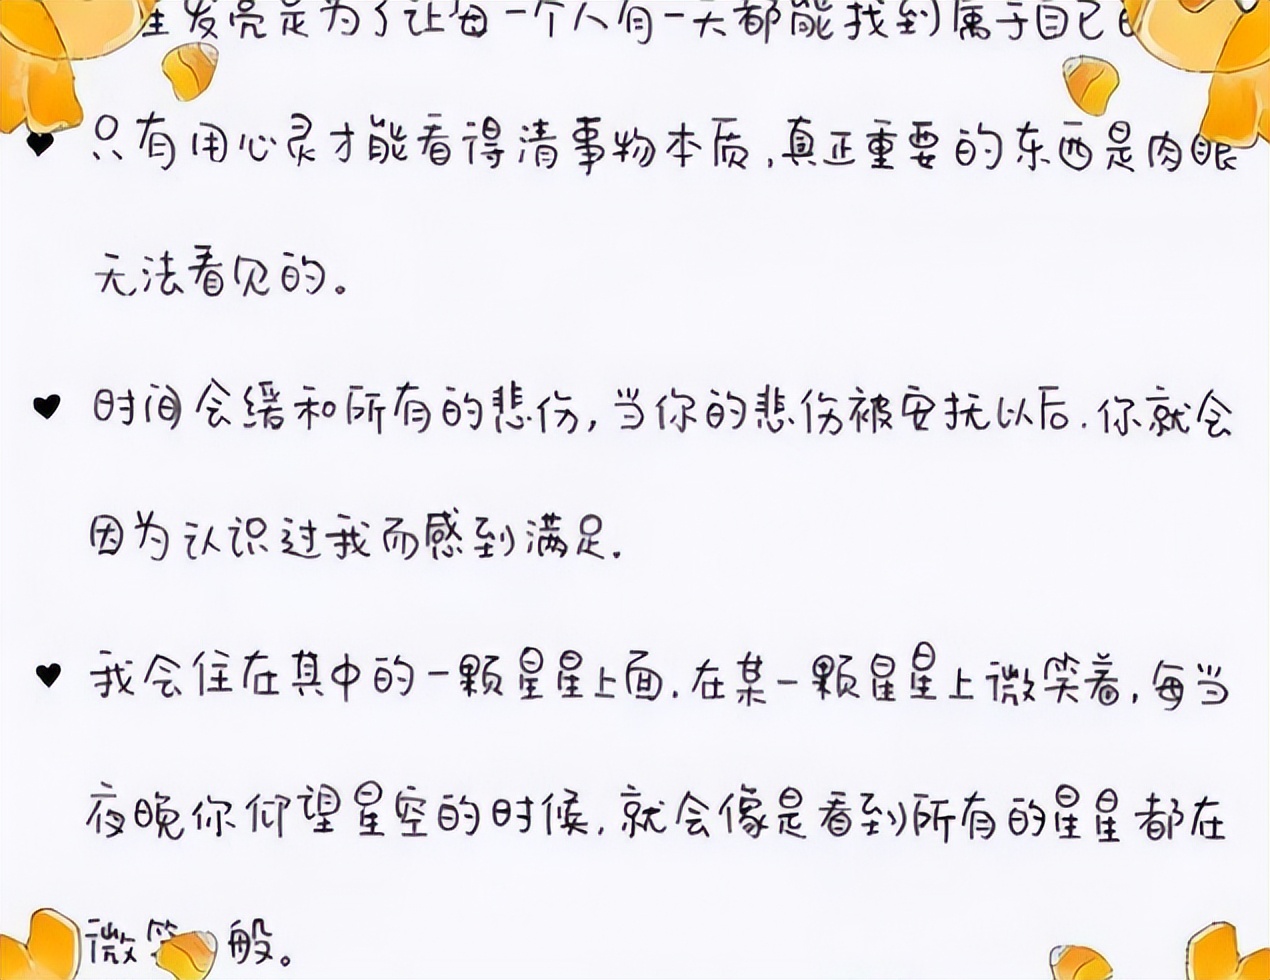 发亮是为了让每一个人有一天都能找到属于自己
♥ 只有用心灵才能看得清事物本质,真正重要的东西是肉眼
无法看见的。
♥ 时间会缓和所有的悲伤,当你的悲伤被安抚以后.你就会
因为认识过我而感到满足.
♥ 我会住在其中的一颗星星上面.在某一颗星星上微笑着,每当
夜晚你仰望星空的时候,就会像是看到所有的星星都在
微笑般。